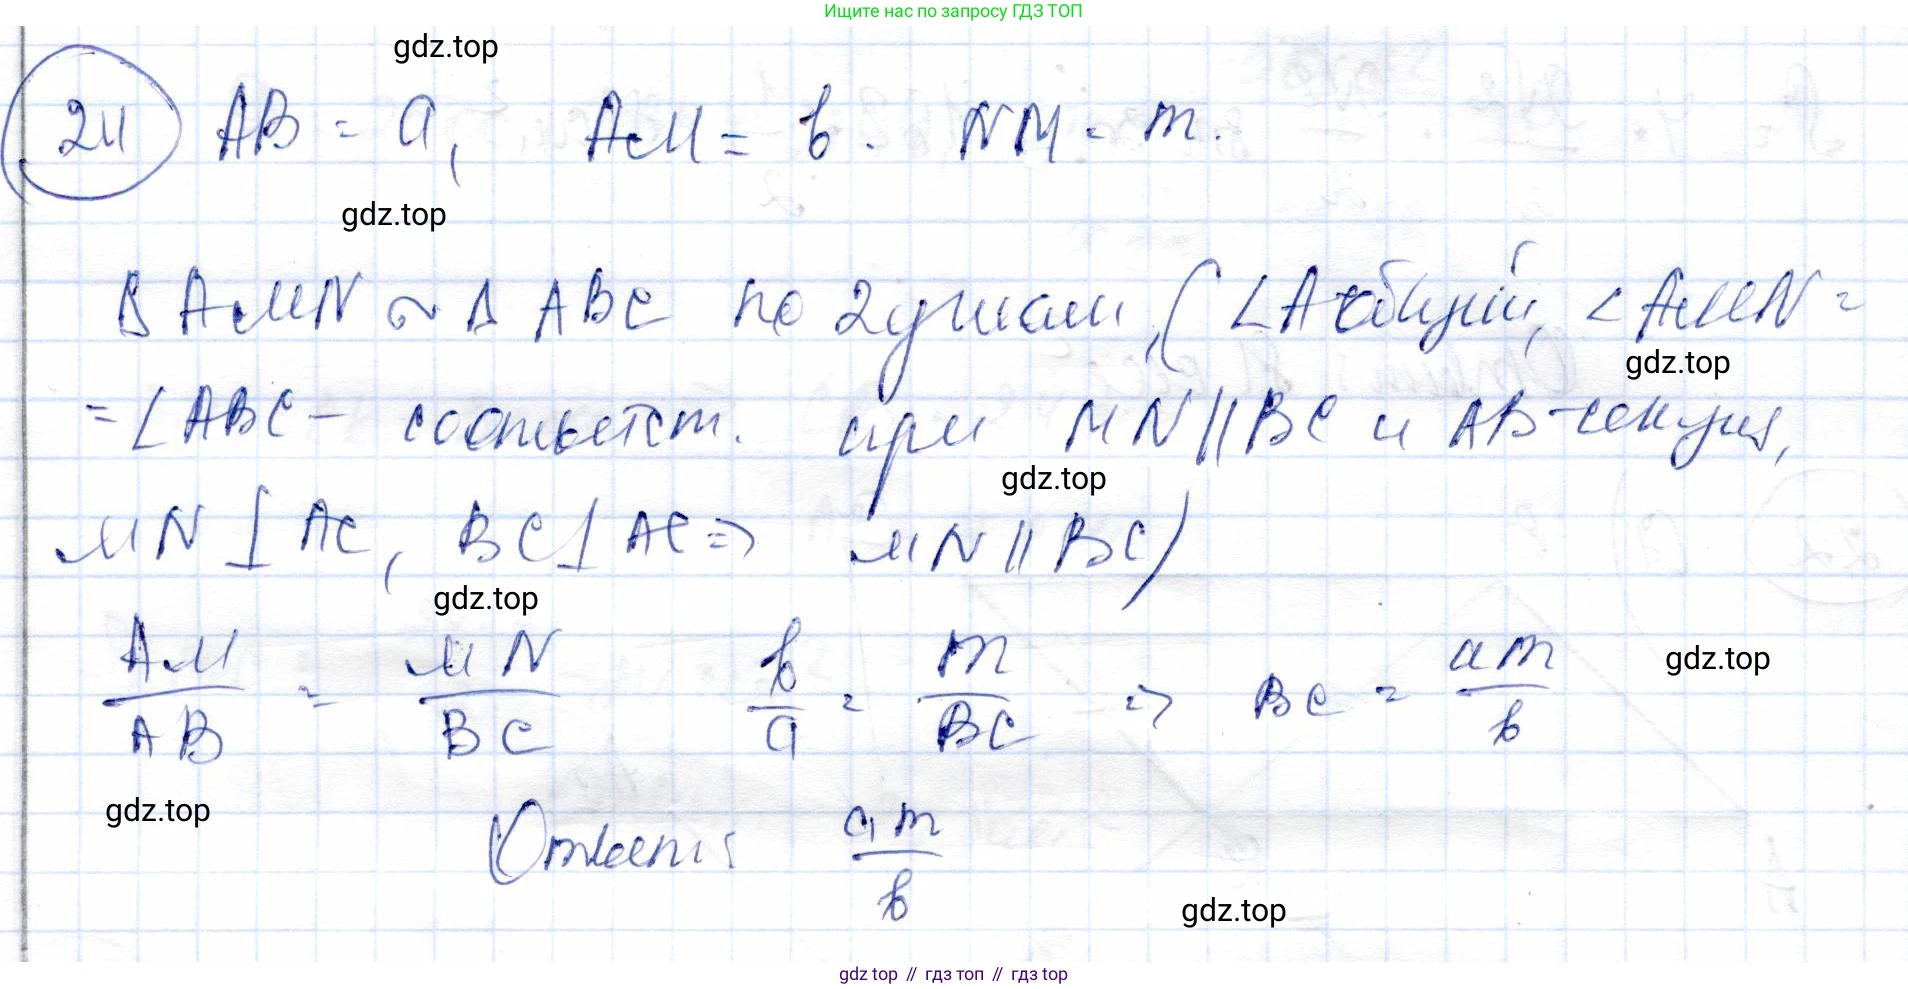 Ищите нас по запросу ГДЗ ТОП
gdz.top
24 AB = a, AM = b. NM = m.
gdz.top
Δ AMN ∾ Δ ABC по 2 углам, (∠A-общий, ∠AMN =
gdz.top
= ∠ABC - соответст. при MN || BC и AB-секущая,
gdz.top
MN ⊥ AC, BC ⊥ AC => MN || BC)
gdz.top
AM/AB = MN/BC b/a = m/BC => BC = am/b
gdz.top
gdz.top
Ответ: am/b
gdz.top
gdz top // гдз топ // гдз top